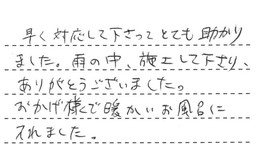 早く対応して下さってとても助かり
ました。雨の中、施工して下さり、
ありがとうございました。
おかげ様で暖かいお風呂に
入れました。